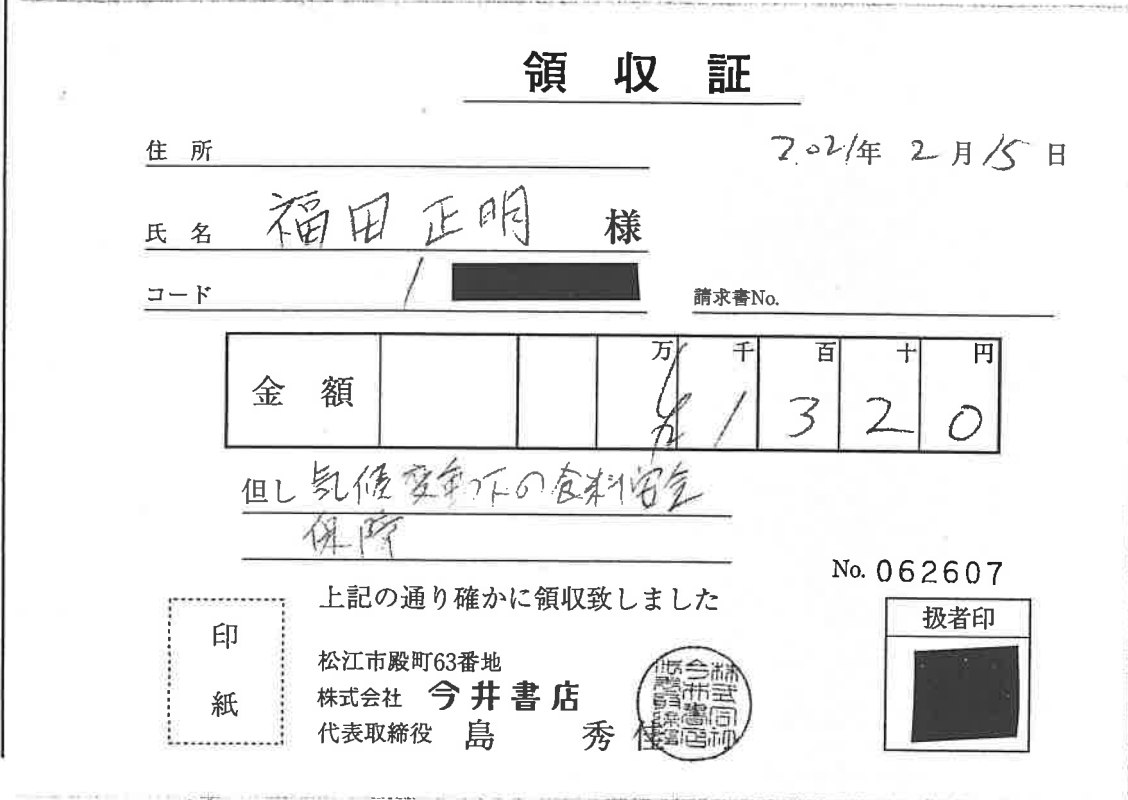 領収証
住所
2021年 2月15日
氏名 福田正明 様
コード /
請求書No.
金額 万 千 百 十 円
1320
但し 気候変動下の食料安全
保障
No. 062607
上記の通り確かに領収致しました
印紙
扱者印
松江市殿町63番地
株式会社 今井書店
代表取締役 島 秀佳